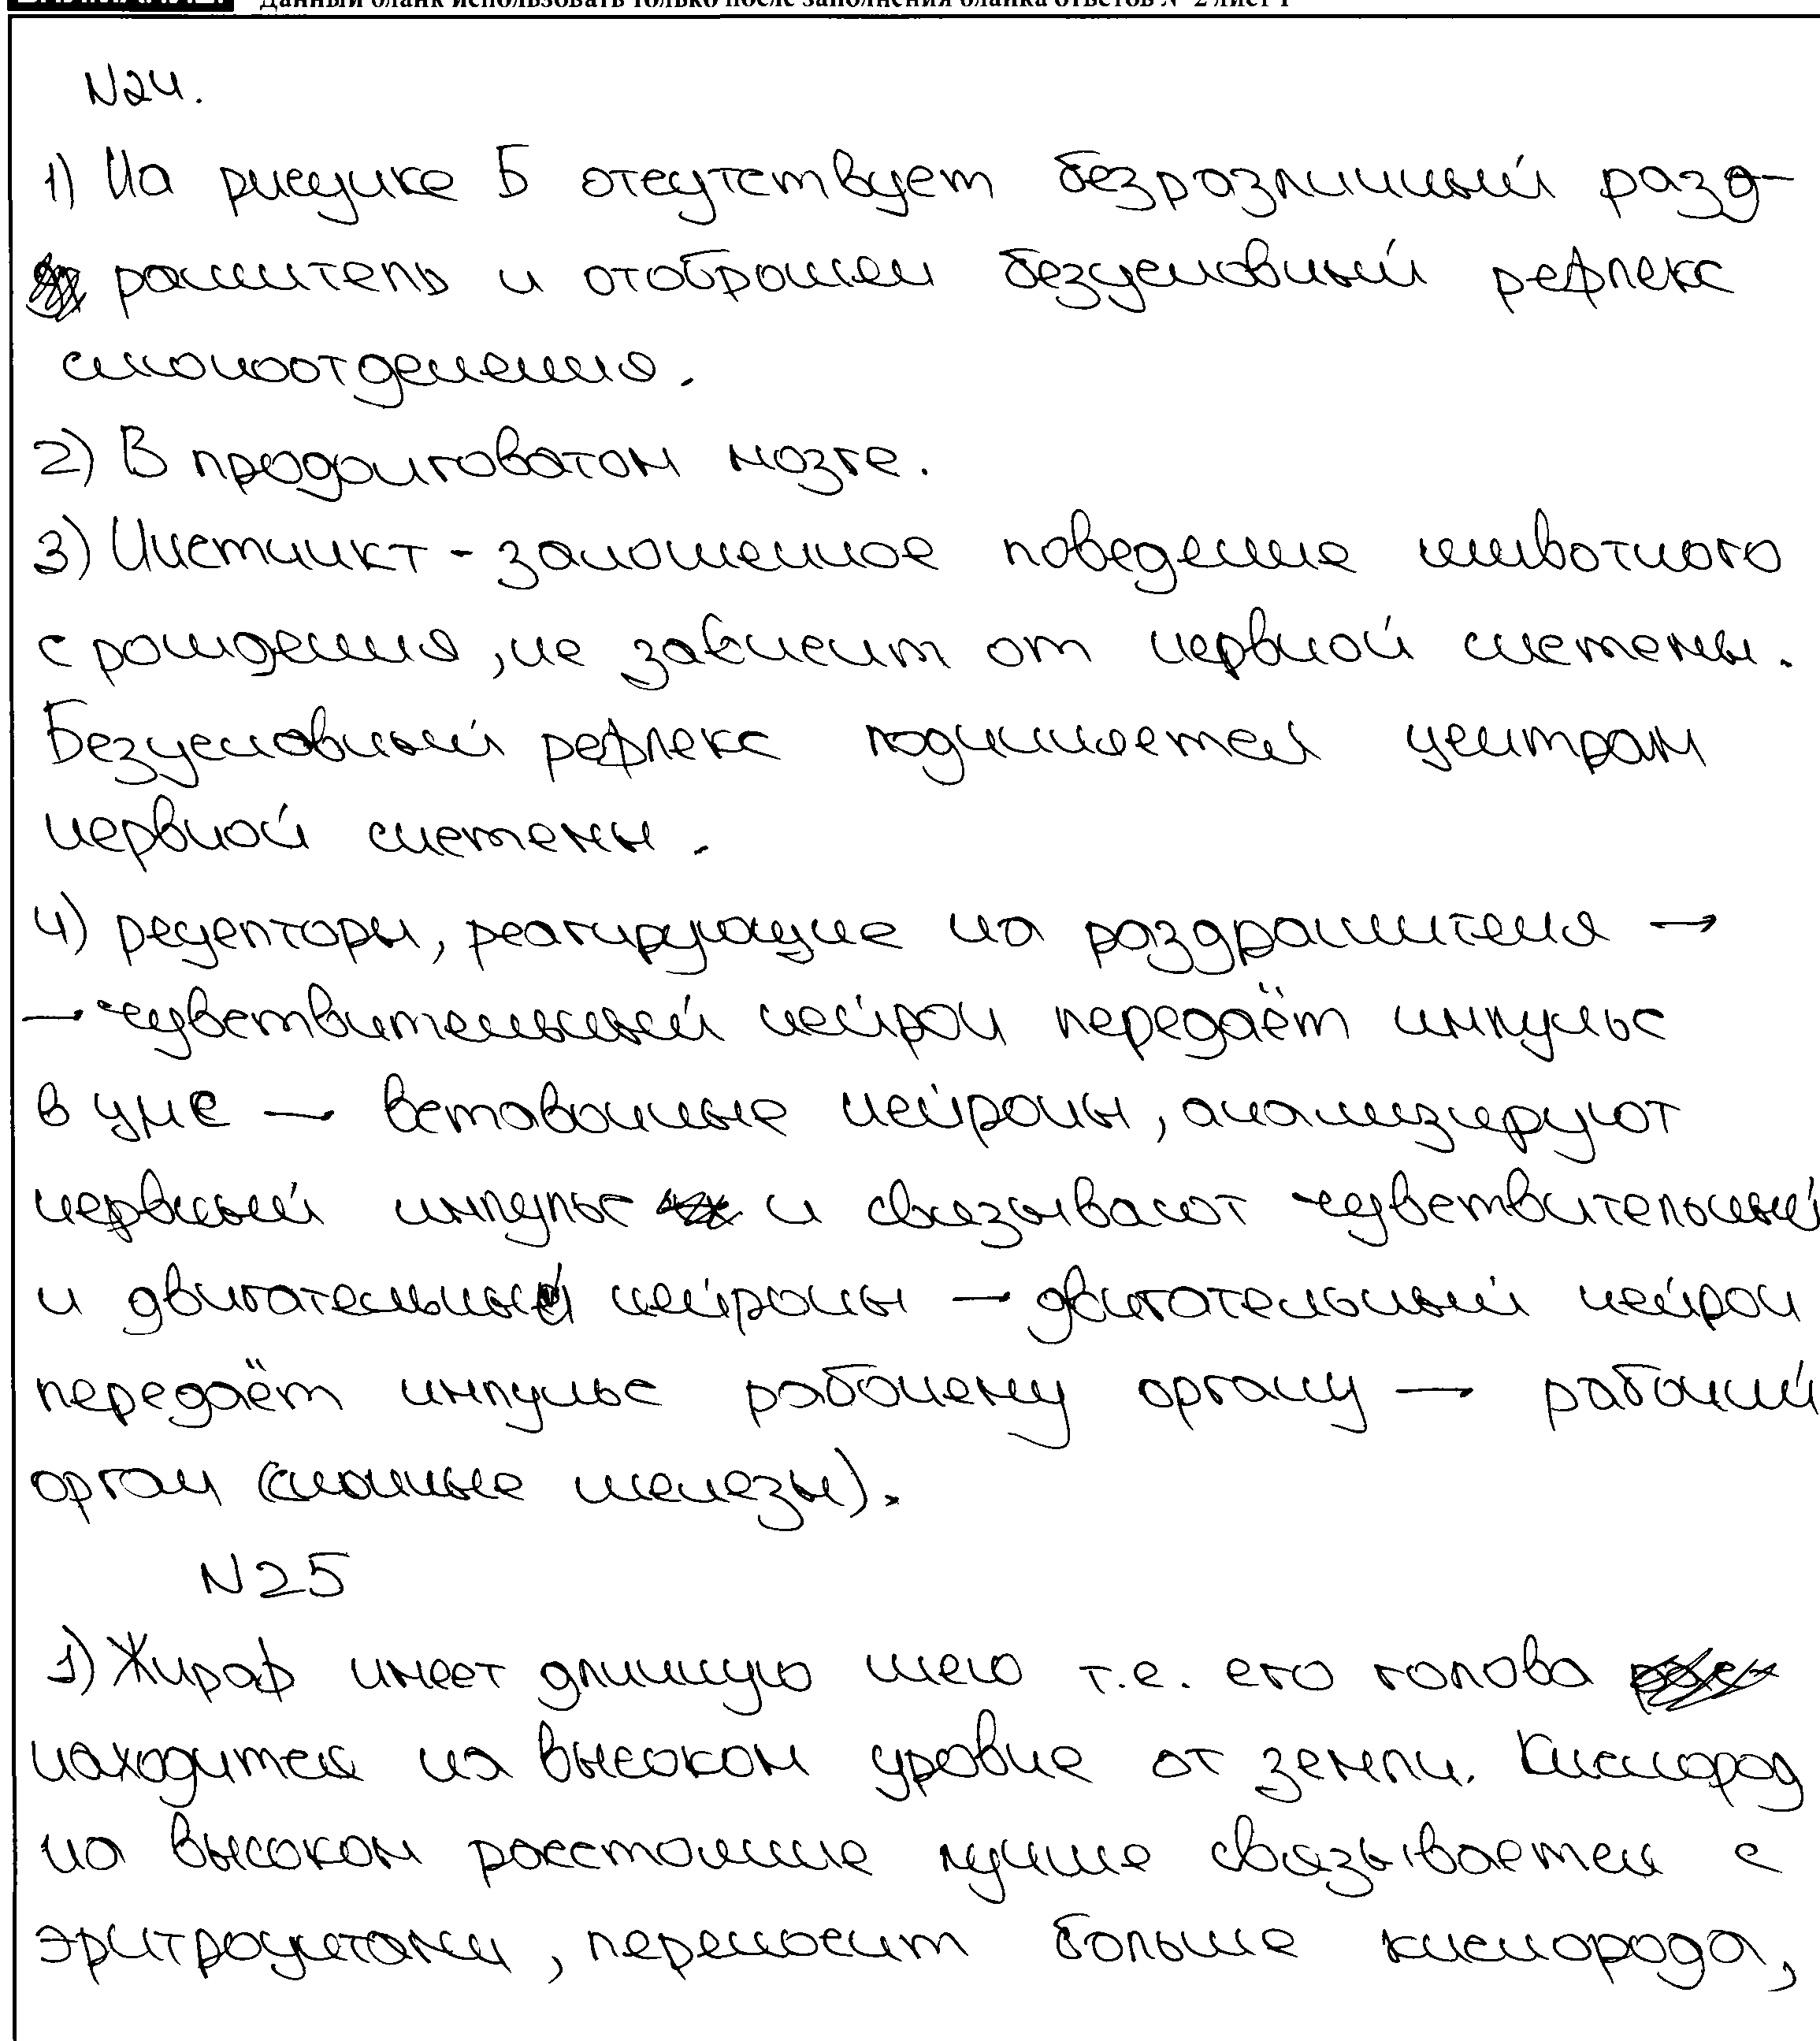 Данный бланк использовать только после заполнения бланка ответов № 2 лист 1
N24.
1) На рисунке Б отсутствует безразличный разд-
ражитель и отображен безусловный рефлекс
слюноотделения.
2) В продолговатом мозге.
3) Инстинкт - заложенное поведение животного
с рождения, не зависит от нервной системы.
Безусловный рефлекс подчиняется центрам
нервной системы.
4) рецепторы, реагирующие на раздражителя →
→ чувствительный нейрон передаёт импульс
в ЦНС → вставочные нейроны, анализируют
нервный импульс и связывают чувствительный
и двигательный нейроны → двигательный нейрон
передаёт импульс рабочему органу → рабочий
орган (слюнные железы).
N25
1) Жираф имеет длинную шею т.е. его голова
находится на высоком уровне от земли. Кислород
на высоком расстояние лучше связывается с
эритроцитами, переносит больше кислорода,